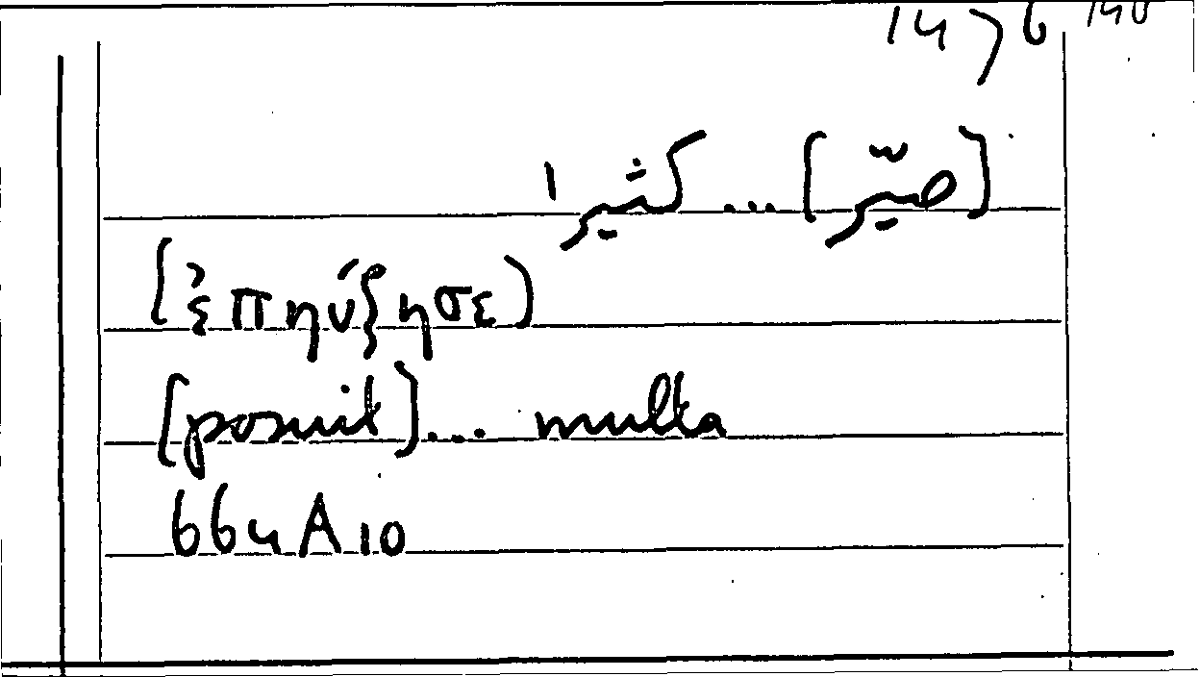 [صيّر] ... كثيرا
(ἐπηύξησε)
[posuit]... multa
664A10